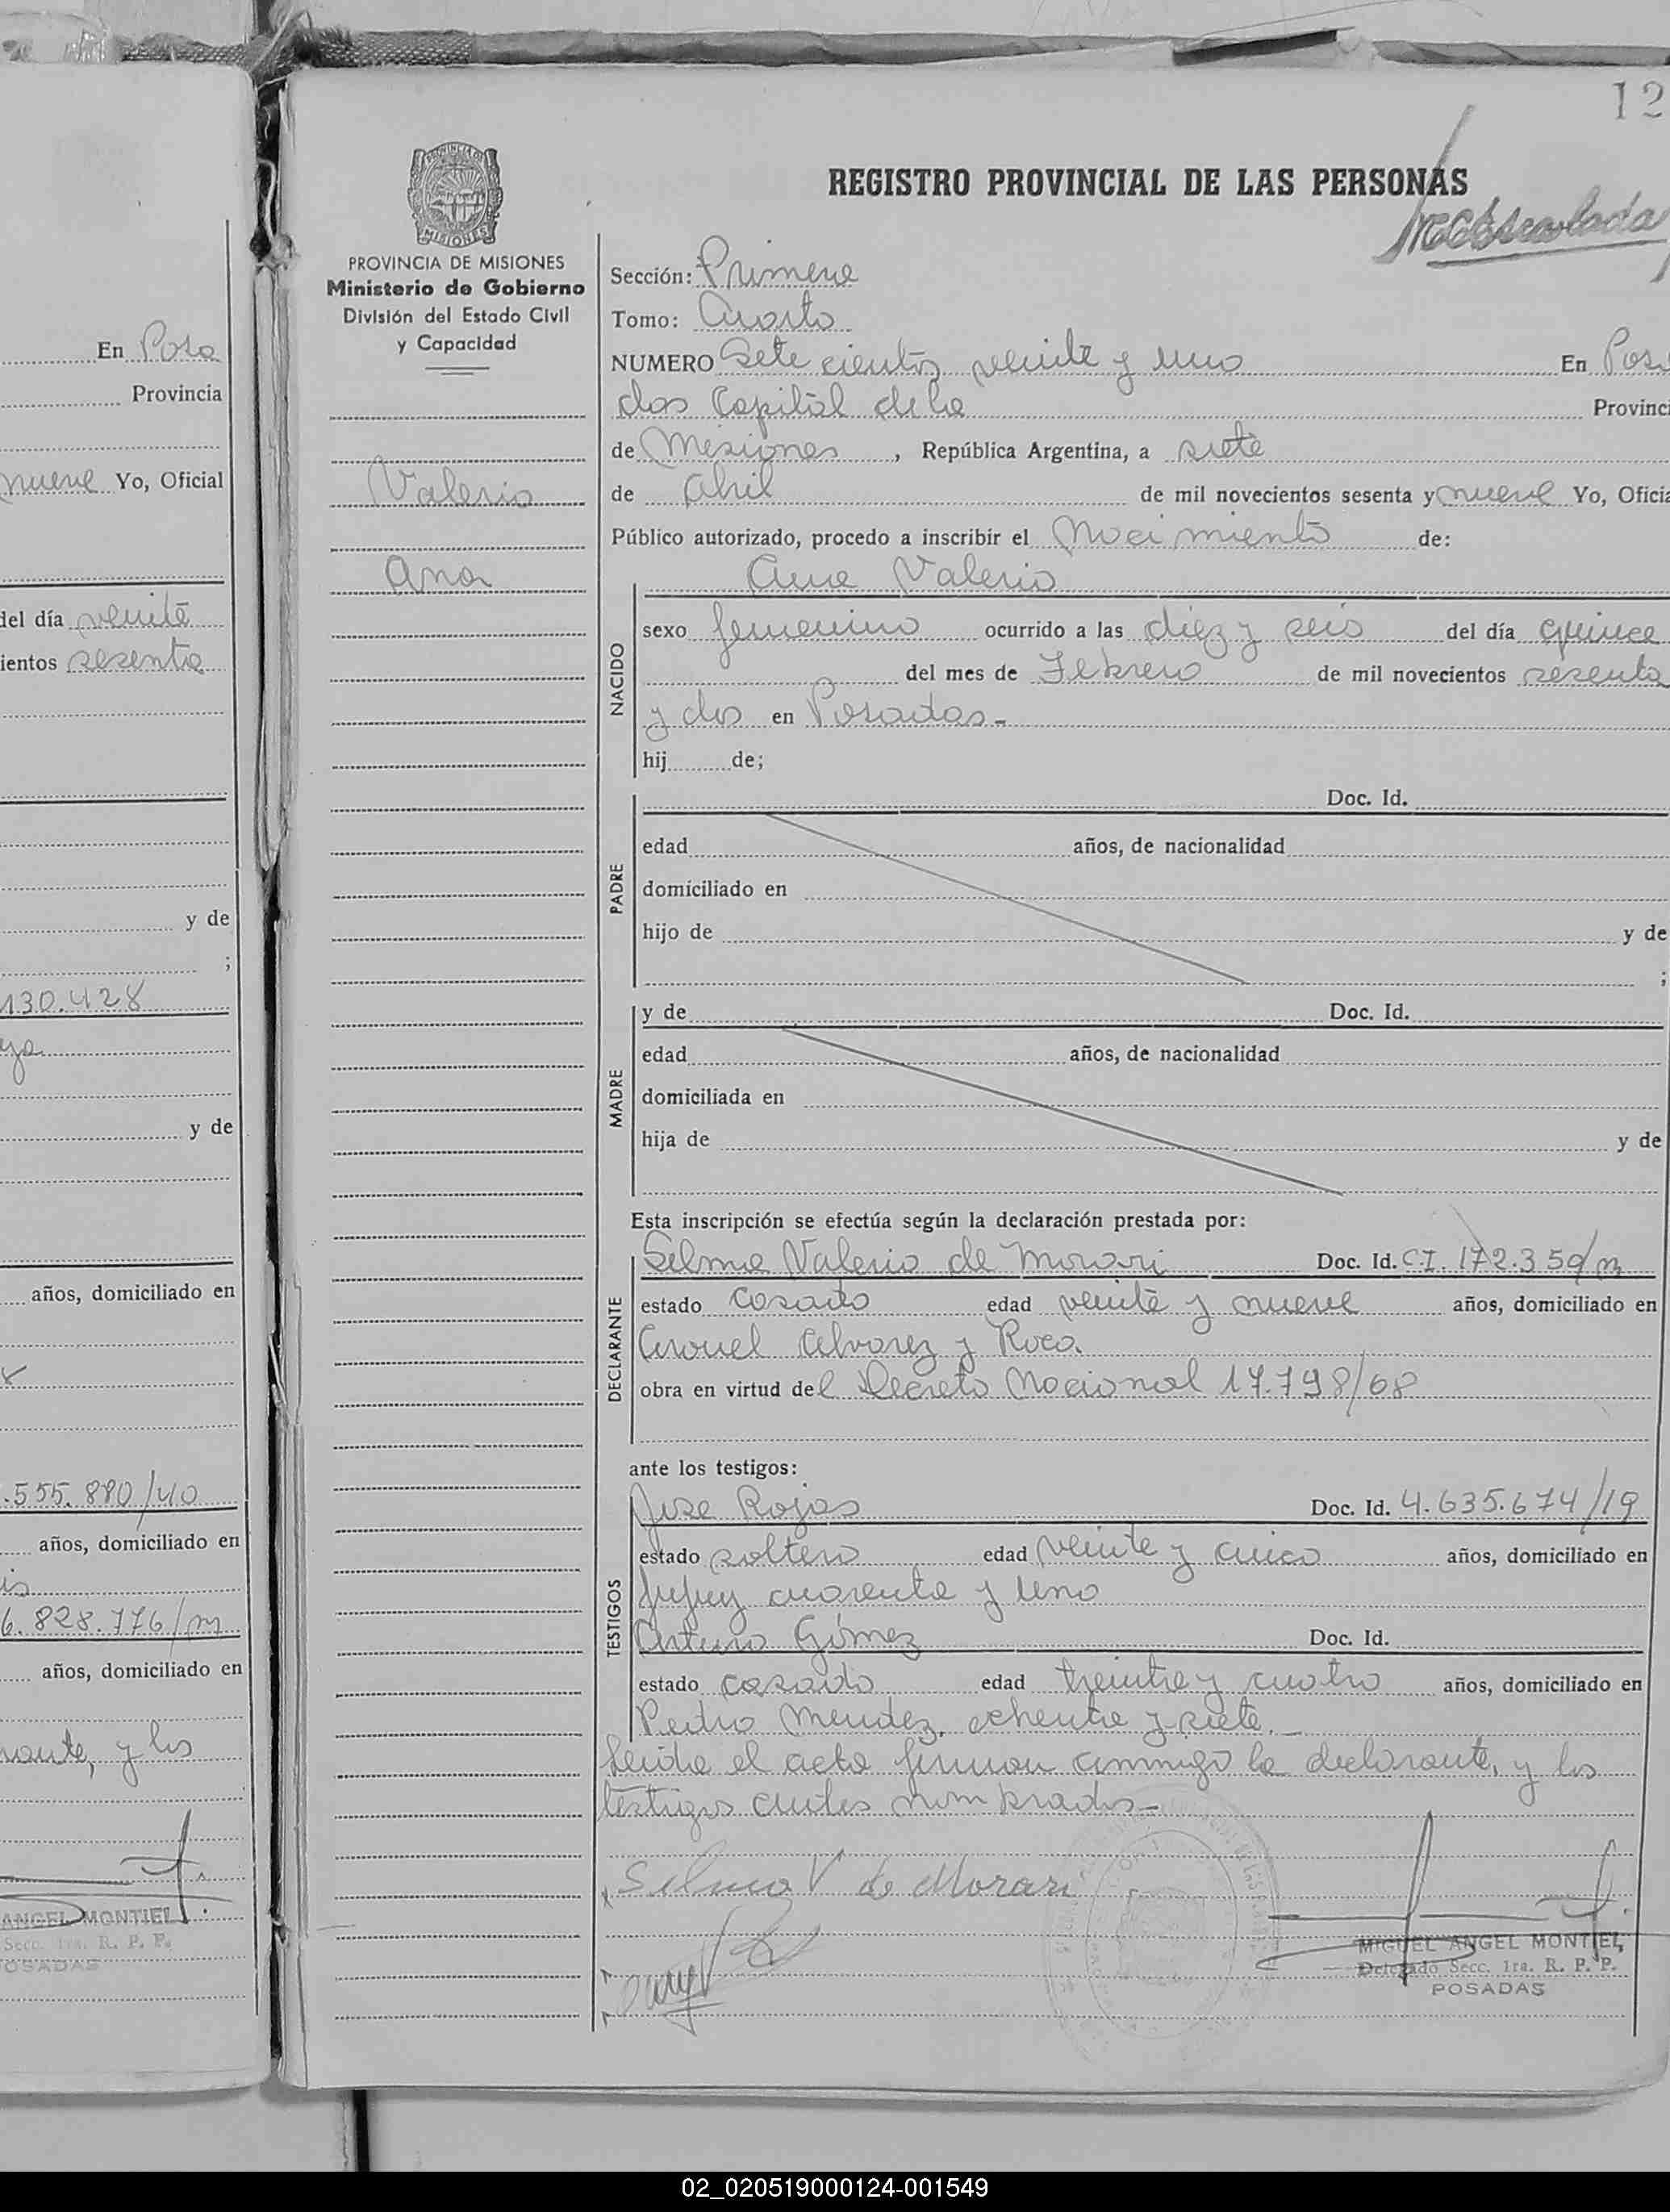 12
REGISTRO PROVINCIAL DE LAS PERSONAS
PROVINCIA DE MISIONES
Ministerio de Gobierno
División del Estado Civil
y Capacidad
Valerio
Ana
Sección: Primera
Tomo: Cuarto
NUMERO Sete cientos veinte y uno En Posa
das Capital de la Provinci
de Misiones, República Argentina, a siete
de Abril de mil novecientos sesenta y nueve Yo, Oficia
Público autorizado, procedo a inscribir el Nacimiento de:
Ana Valerio
NACIDO
sexo femenino ocurrido a las diez y seis del día quince
del mes de Febrero de mil novecientos sesenta
y dos en Posadas.-
hij de;
PADRE
Doc. Id.
edad años, de nacionalidad
domiciliado en
hijo de y de
;
MADRE
y de Doc. Id.
edad años, de nacionalidad
domiciliada en
hija de y de
Esta inscripción se efectúa según la declaración prestada por:
DECLARANTE
Selma Valerio de Morari Doc. Id. C.I. 172.359/m
estado casado edad veinte y nueve años, domiciliado en
Coronel Alvarez y Roca.
obra en virtud del Decreto Nacional 17.798/68
ante los testigos:
TESTIGOS
Jose Rojas Doc. Id. 4.635.674/19
estado soltero edad veinte y cinco años, domiciliado en
Jujuy cuarenta y uno
Arturo Gómez Doc. Id.
estado casado edad treinta y cuatro años, domiciliado en
Pedro Mendez, ochenta y siete.-
Leida el acta firman conmigo la declarante, y los
testigos antes nombrados-
Selma V de Morari
MIGUEL ANGEL MONTIEL
Delegado Secc. 1ra. R. P. P.
POSADAS
En Posa
Provincia
nueve Yo, Oficial
del día veinte
ientos sesenta
y de
;
130.428
y de
años, domiciliado en
.555.880/40
años, domiciliado en
6.828.776/m
años, domiciliado en
rante, y los
ANGEL MONTIEL
Secc. 1ra. R. P. P.
OSADAS
02_020519000124-001549